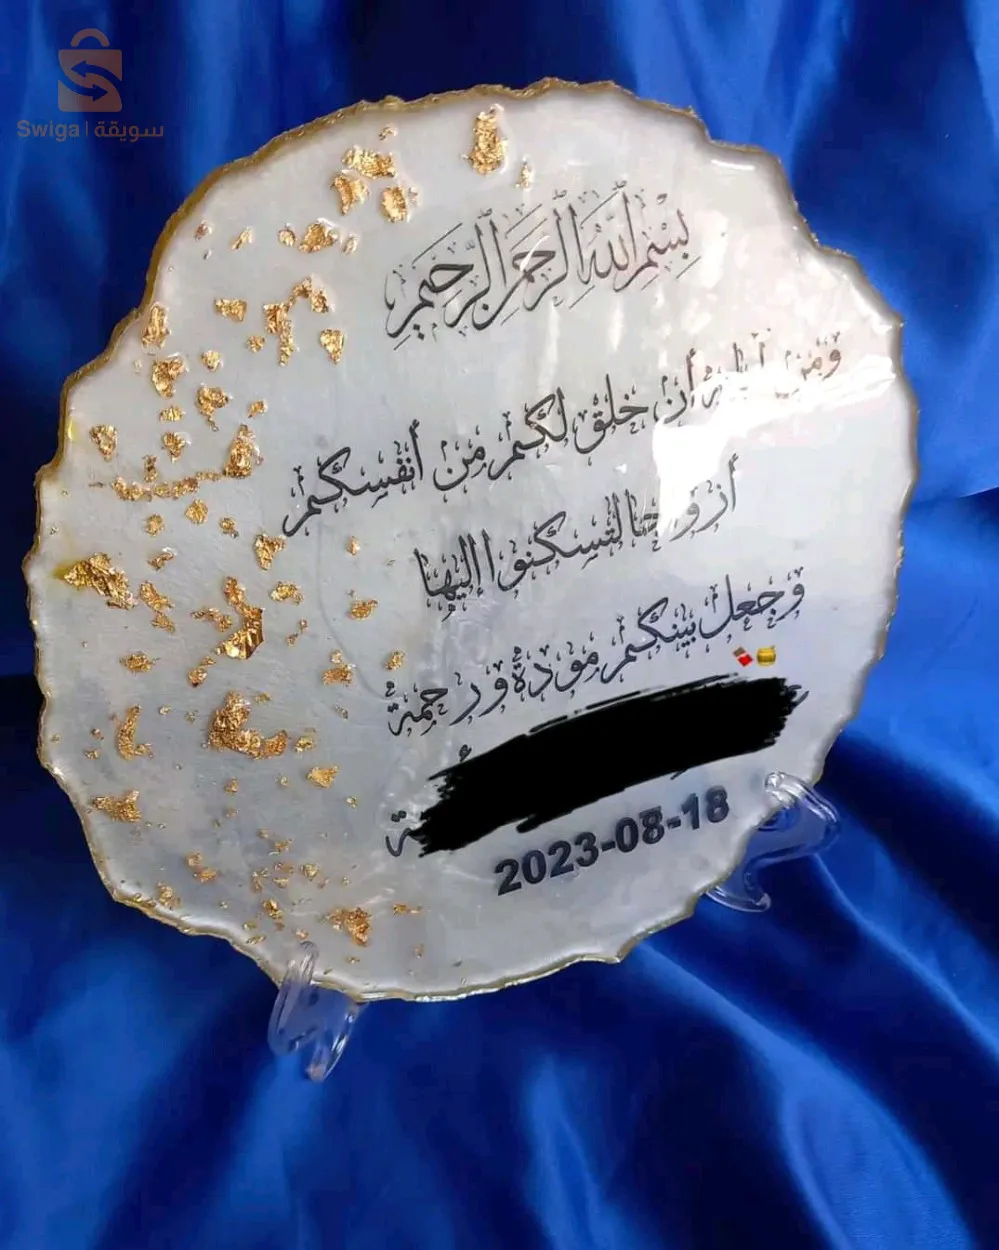 Swiga | سويقة
بِسْمِ اللَّهِ الرَّحْمَٰنِ الرَّحِيمِ
وَمِنْ أَنْ خَلَقَ لَكُم مِّنْ أَنفُسِكُمْ
أَزْوَاجًا لِّتَسْكُنُوا إِلَيْهَا
وَجَعَلَ بَيْنَكُم مَّوَدَّةً وَرَحْمَةً
2023-08-18